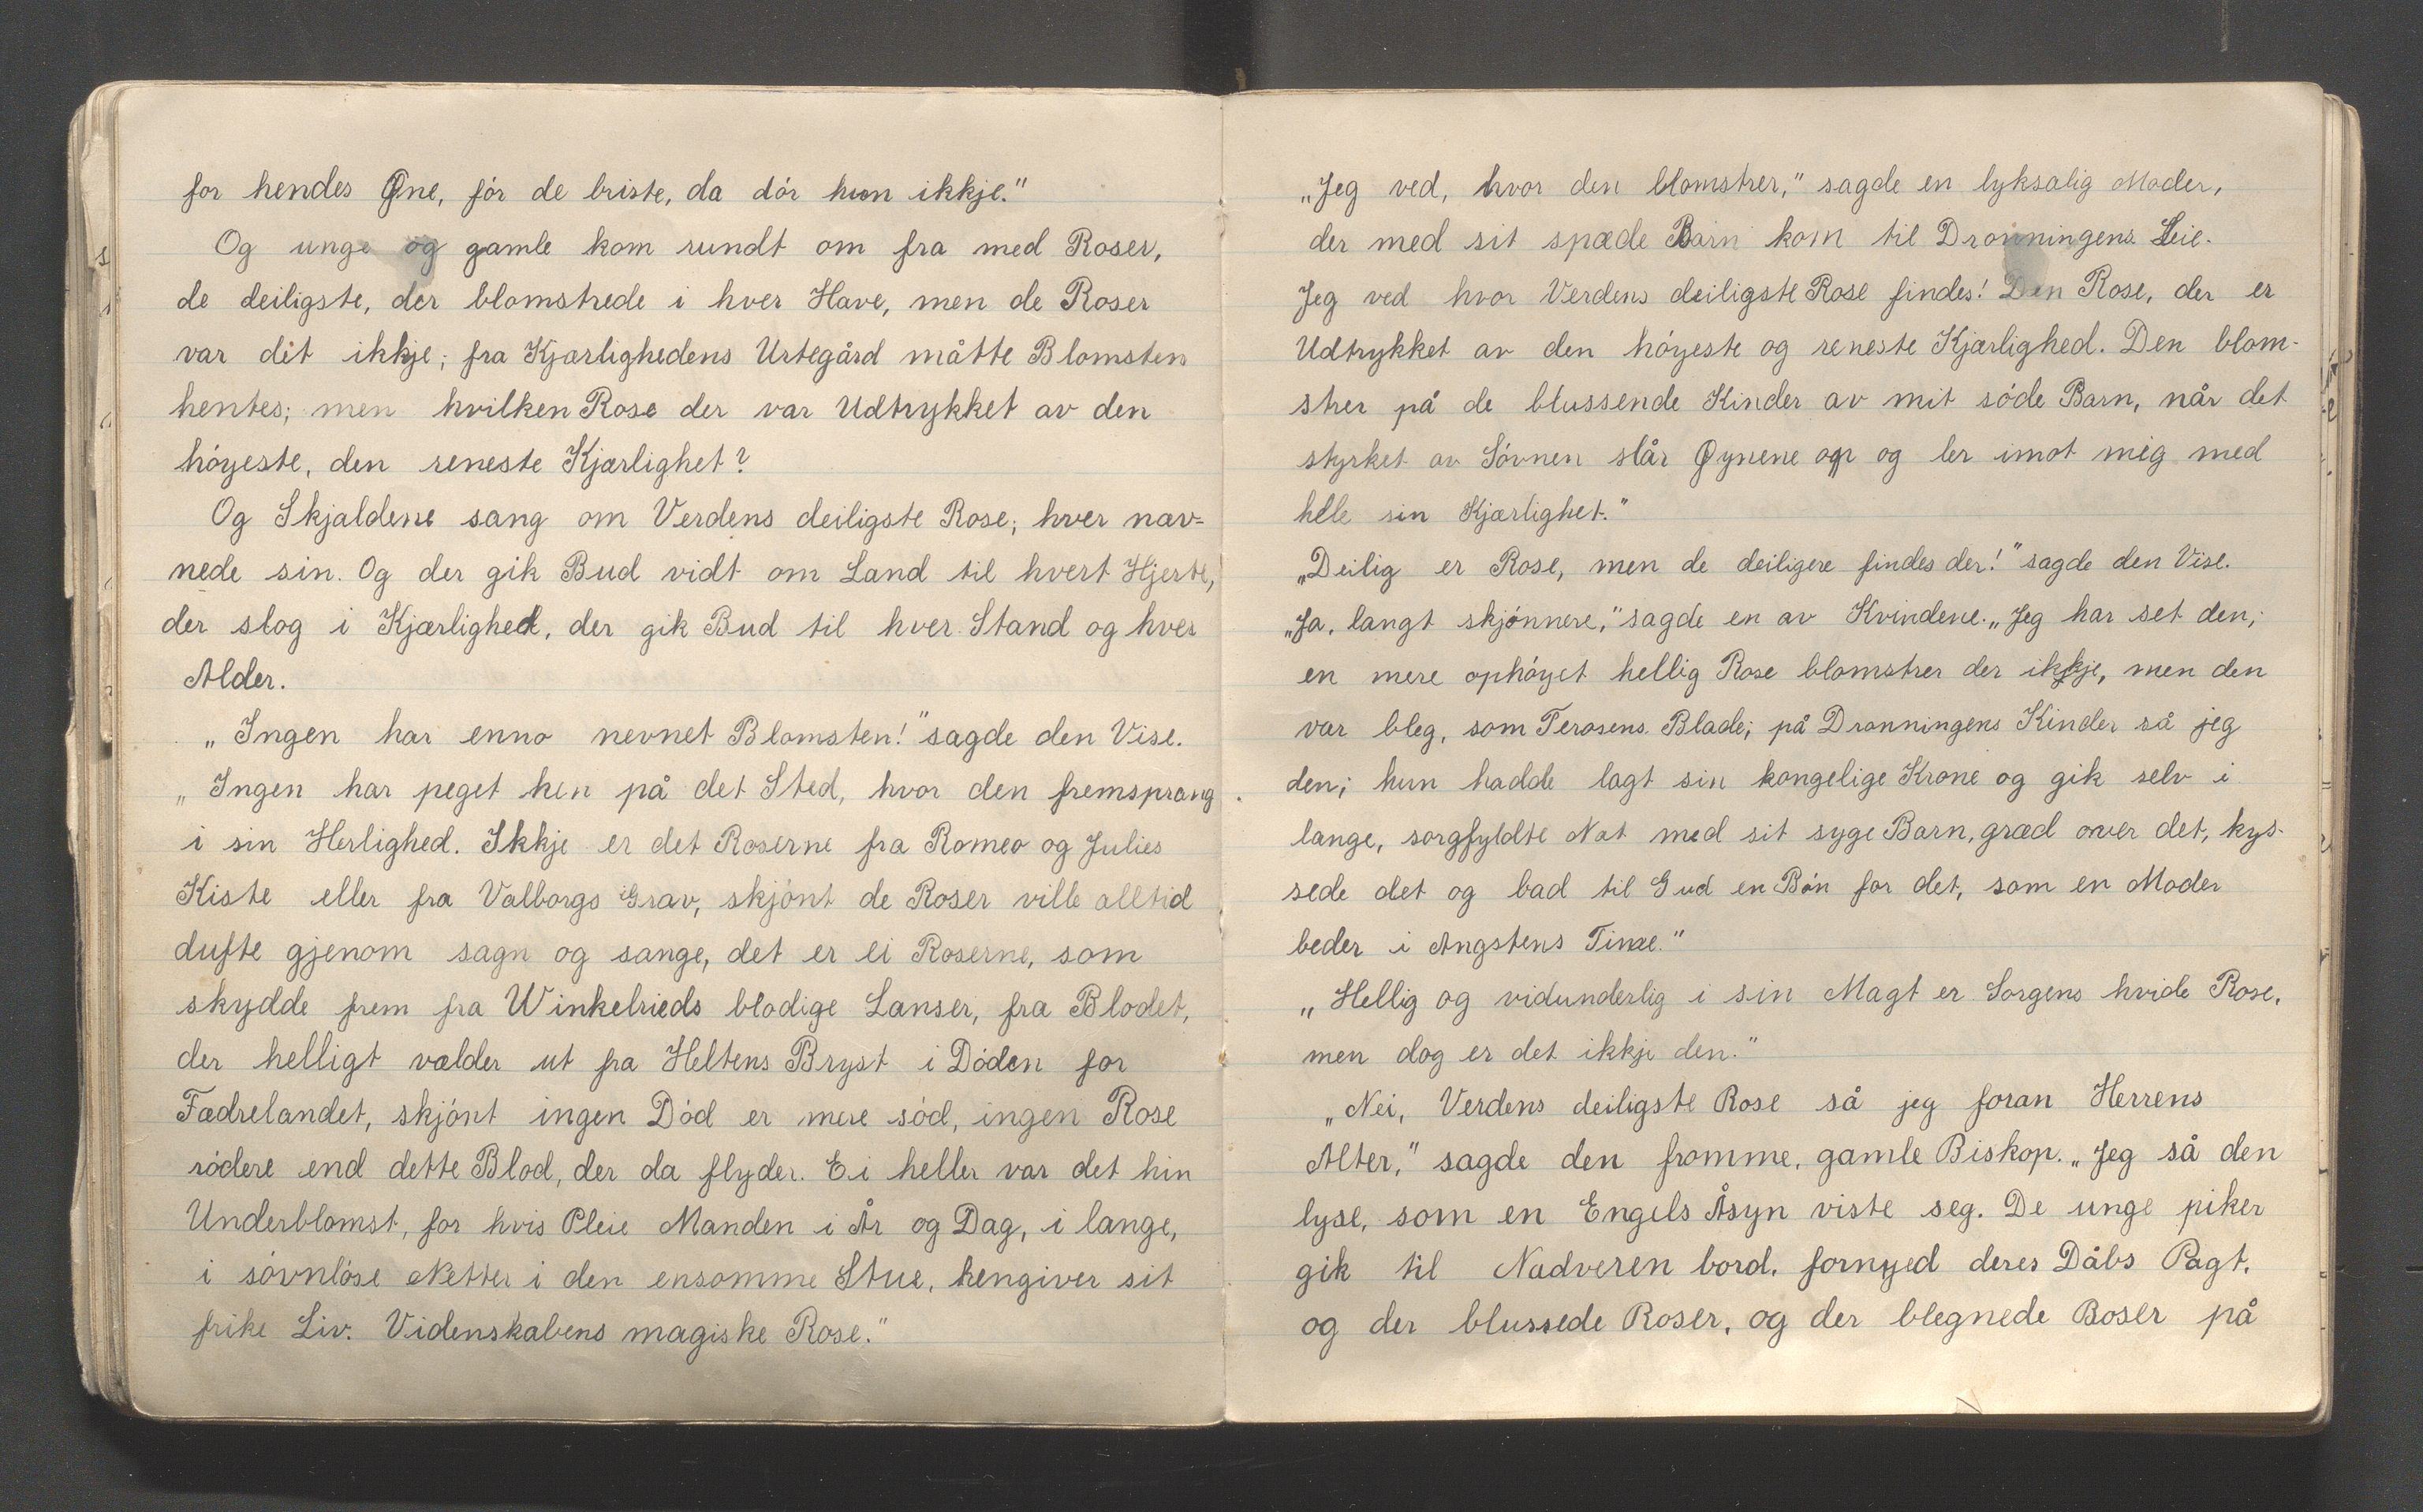 for hendes Øine, før de briste, da dór hun ikkje."
Og unge og gamle kom rundt om fra med Roser,
de deiligste, der blomstrede i hver Have, men de Roser
var dét ikkje; fra Kjærlighedens Urtegård måtte Blomsten
hentes; men hvilken Rose der var Udtrykket av den
hóyeste, den reneste Kjærlighet?
Og Skjaldene sang om Verdens deiligste Rose; hver nav-
nede sin. Og der gik Bud vidt om Land til hvert Hjerte,
der slog i Kjærlighed, der gik Bud til hver Stand og hver
Alder.
„Ingen har enno nevnet Blomsten!" sagde den Vise.
„Ingen har peget hen på det Sted, hvor den fremsprang
i sin Herlighed. Ikkje er det Roserne fra Romeo og Julies
Kiste eller fra Valborgs Grav, skjónt de Roser ville alltid
dufte gjenom sagn og sange, det er ei Roserne, som
skydde frem fra Winkelrieds blodige Lanser, fra Blodet,
der helligt vælder ut fra Heltens Bryst i Dóden for
Fædrelandet, skjónt ingen Dód er mere sód, ingen Rose
ródere end dette Blod, der da flyder. Ei heller var det hin
Underblomst, for hvis Pleie Manden i År og Dag, i lange,
i sóvnlóse Netter i den ensomme Stue, hengiver sit
frike Liv. Videnskabens magiske Rose."
„Jeg ved, hvor den blomstrer," sagde en lyksalig Moder,
der med sit spæde Barn kom til Dronningens Leie.
Jeg ved hvor Verdens deiligste Rose findes! Den Rose, der er
Udtrykket av den hóyeste og reneste Kjærlighed. Den blom-
strer på de blussende Kinder av mit sóde Barn, når det
styrket av Sóvnen slår Øynene op og ler imot mig med
hele sin Kjærlighet."
„Deilig er Rose, men de deiligere findes der!" sagde den Vise.
„Ja, langt skjónnere," sagde en av Kvindene. „Jeg har set den;
en mere ophóyet hellig Rose blomstrer der ikkje, men den
var bleg, som Terosens Blade; på Dronningens Kinder så jeg
den; hun hadde lagt sin kongelige Krone og gik selv i
lange, sorgfyldte Nat med sit syge Barn, græd over det, kys-
sede det og bad til Gud en Bón for det, som en Moder
beder i Angstens Time."
„Hellig og vidunderlig i sin Magt er Sorgens hvide Rose,
men dog er det ikkje den."
„Nei, Verdens deiligste Rose så jeg foran Herrens
Alter," sagde den fromme, gamle Biskop. „Jeg så den
lyse, som en Engels Åsyn viste seg. De unge piker
gik til Nadveren bord, fornyed deres Dåbs Pagt,
og der blussede Roser, og der blegnede Roser på